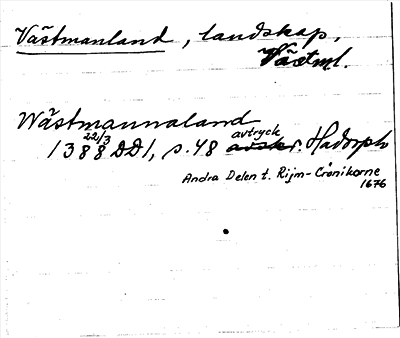 Västmanland, landskap,
Västml.
Wästmannaland
22/3
1388 DD1, s. 48 avskr. avtryck Hadorph
Andra Delen t. Rijm-Crönikorne
1676